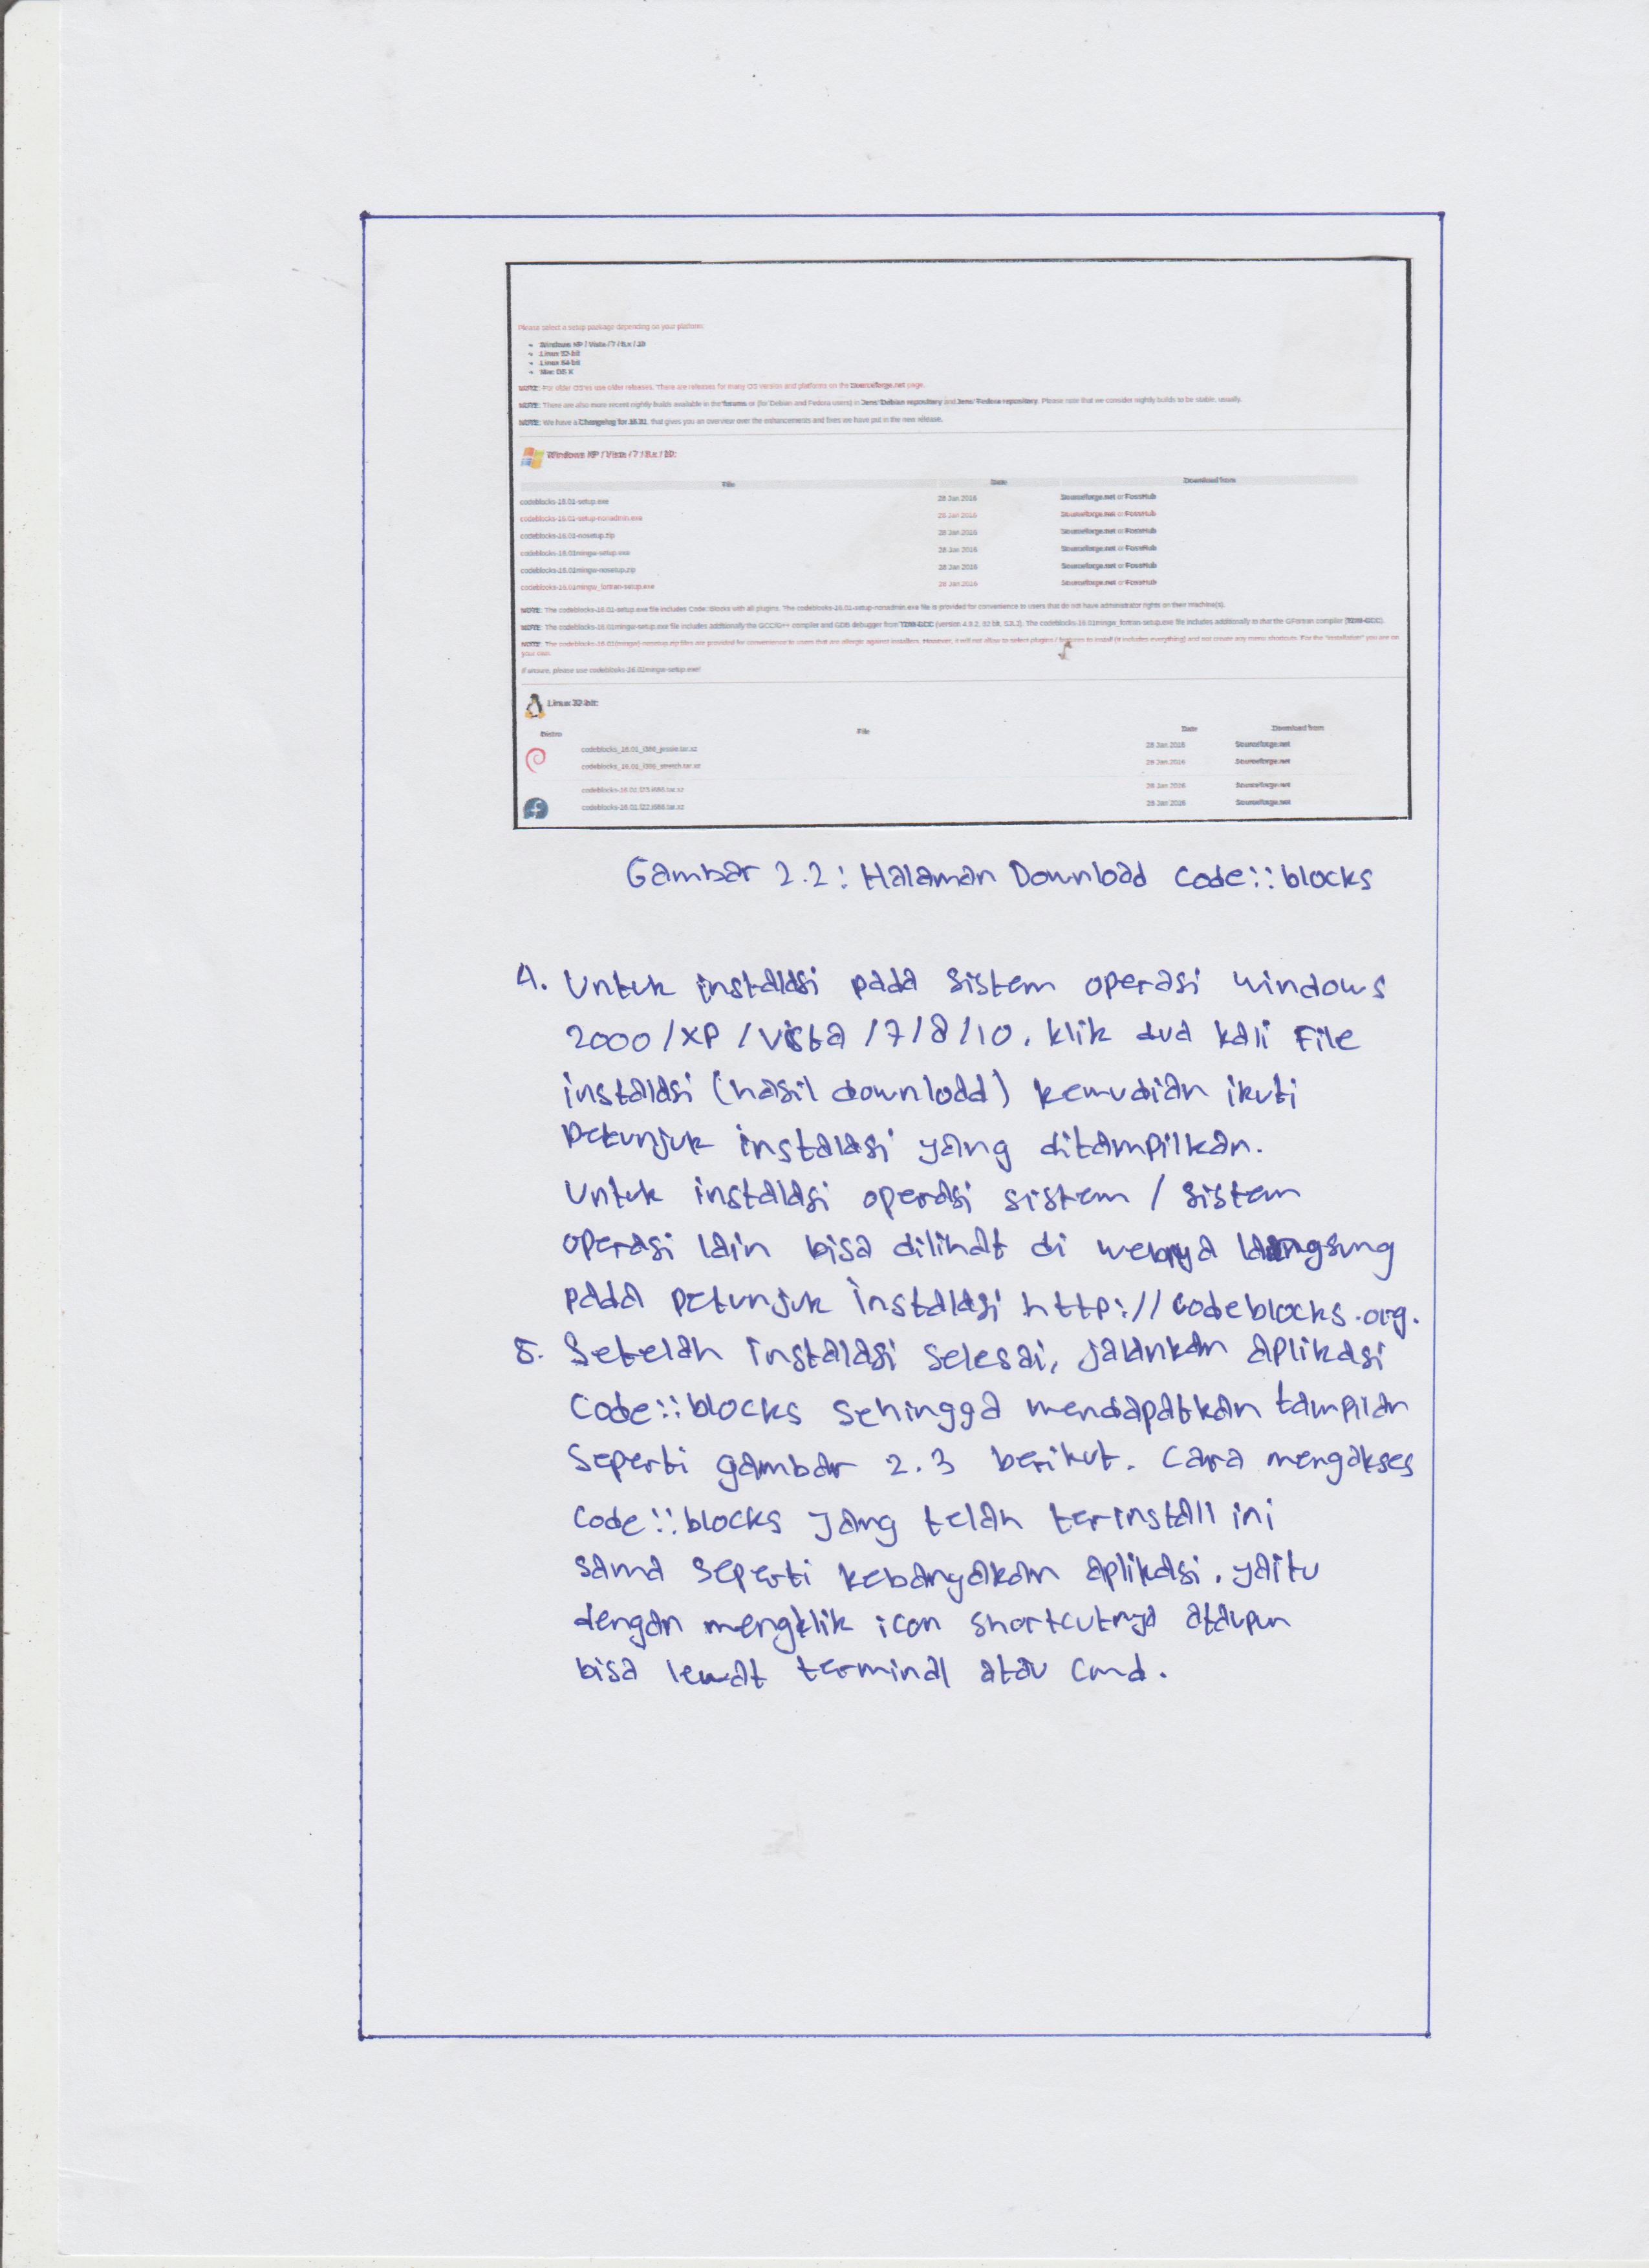 Please select a setup package depending on your platform:
Windows XP / Vista / 7 / 8.x / 10
Linux 32-bit
Linux 64-bit
Mac OS X
NOTE: For older OS'es use older releases. There are releases for many OS version and platforms on the Sourceforge.net page.
NOTE: There are also more recent nightly builds available in the forums or (for Debian and Fedora users) in Jens' Debian repository and Jens' Fedora repository. Please note that we consider nightly builds to be stable, usually.
NOTE: We have a Changelog for 16.01, that gives you an overview over the enhancements and fixes we have put in the new release.
Windows XP / Vista / 7 / 8.x / 10:
File Date Download from
codeblocks-16.01-setup.exe 28 Jan 2016 Sourceforge.net or FossHub
codeblocks-16.01-setup-nonadmin.exe 28 Jan 2016 Sourceforge.net or FossHub
codeblocks-16.01-nosetup.zip 28 Jan 2016 Sourceforge.net or FossHub
codeblocks-16.01mingw-setup.exe 28 Jan 2016 Sourceforge.net or FossHub
codeblocks-16.01mingw-nosetup.zip 28 Jan 2016 Sourceforge.net or FossHub
codeblocks-16.01mingw_fortran-setup.exe 28 Jan 2016 Sourceforge.net or FossHub
NOTE: The codeblocks-16.01-setup.exe file includes Code::Blocks with all plugins. The codeblocks-16.01-setup-nonadmin.exe file is provided for convenience to users that do not have administrator rights on their machine(s).
NOTE: The codeblocks-16.01mingw-setup.exe file includes additionally the GCC/G++ compiler and GDB debugger from TDM-GCC (version 4.9.2, 32 bit, SJLJ). The codeblocks-16.01mingw_fortran-setup.exe file includes additionally to that the GFortran compiler (TDM-GCC).
NOTE: The codeblocks-16.01(mingw)-nosetup.zip files are provided for convenience to users that are allergic against installers. However, it will not allow to select plugins / features to install (it includes everything) and not create any menu shortcuts. For the "installation" you are on
your own.
If unsure, please use codeblocks-16.01mingw-setup.exe!
Linux 32-bit:
Distro File Date Download from
codeblocks_16.01_i386_jessie.tar.xz 28 Jan 2016 Sourceforge.net
codeblocks_16.01_i386_stretch.tar.xz 28 Jan 2016 Sourceforge.net
codeblocks-16.01.f23.i686.tar.xz 28 Jan 2016 Sourceforge.net
codeblocks-16.01.f22.i686.tar.xz 28 Jan 2016 Sourceforge.net
Gambar 2.2 : Halaman Download Code::blocks
4. Untuk instalasi pada sistem operasi windows
2000/XP/Vista/7/8/10, klik dua kali File
instalasi (hasil download) kemudian ikuti
Petunjuk instalasi yang ditampilkan.
Untuk instalasi operasi sistem / sistem
operasi lain bisa dilihat di webnya langsung
pada petunjuk instalasi http://codeblocks.org.
5. Setelah instalasi selesai, jalankan aplikasi
Code::blocks sehingga mendapatkan tampilan
Seperti gambar 2.3 berikut. Cara mengakses
Code::blocks yang telah terinstall ini
sama seperti kebanyakan aplikasi, yaitu
dengan mengklik icon shortcutnya ataupun
bisa lewat terminal atau cmd.